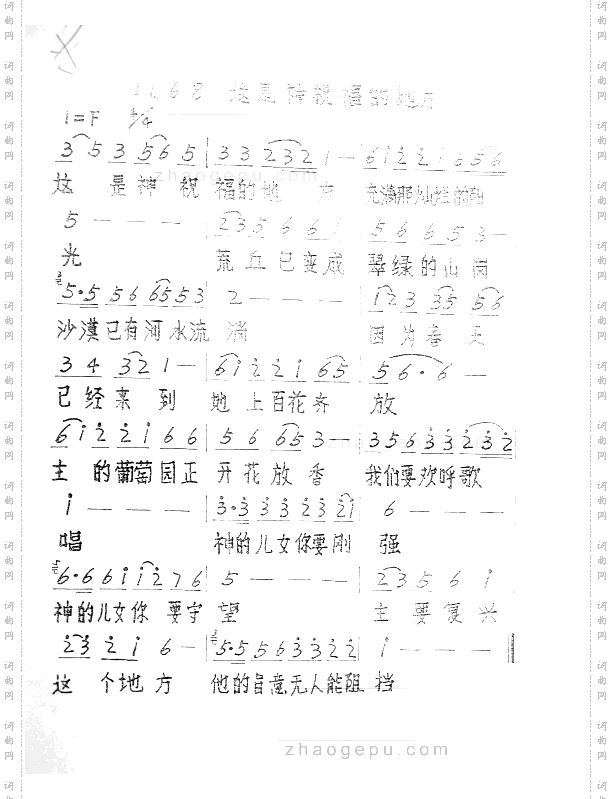 1168 这是神祝福的地方
1=F 4/4
3 5 3 5 6 5 | 3 3 2 3 2 1 — | 6 1 2 2 1 6 5 6
这 是 神 祝 福的 地 方 充满那灿烂的阳
5 — — — | 2 3 5 6 6 1 | 5 6 6 5 3 —
光 荒 丘 已 变 成 翠 绿 的 山 岗
5·5 5 6 6 5 5 3 | 2 — — — | 1 2 3 3 5 5 6
沙漠已有河水流 淌 因 为 春 天
3 4 3 2 1 — | 6 1 2 2 1 6 5 | 5 6·6 —
已 经 来 到 地 上 百花齐 放
6 1 2 2 1 6 6 | 5 6 6 5 3 — | 3 5 6 3 3 2 3 2
主 的葡萄园正 开 花 放 香 我们要欢呼歌
1 — — — | 3·3 3 3 2 3 2 1 | 6 — — —
唱 神的儿女你要刚 强
6·6 6 1 1 2 7 6 | 5 — — — | 2 3 5 6 1
神的儿女你 要守 望 主 要 复 兴
2 3 2 1 6 — | 5·5 5 6 3 3 2 2 | 1 — — —
这 个 地 方 他的旨意无人能阻 挡
zhaogepu.com
zhaogepu.com
词曲网